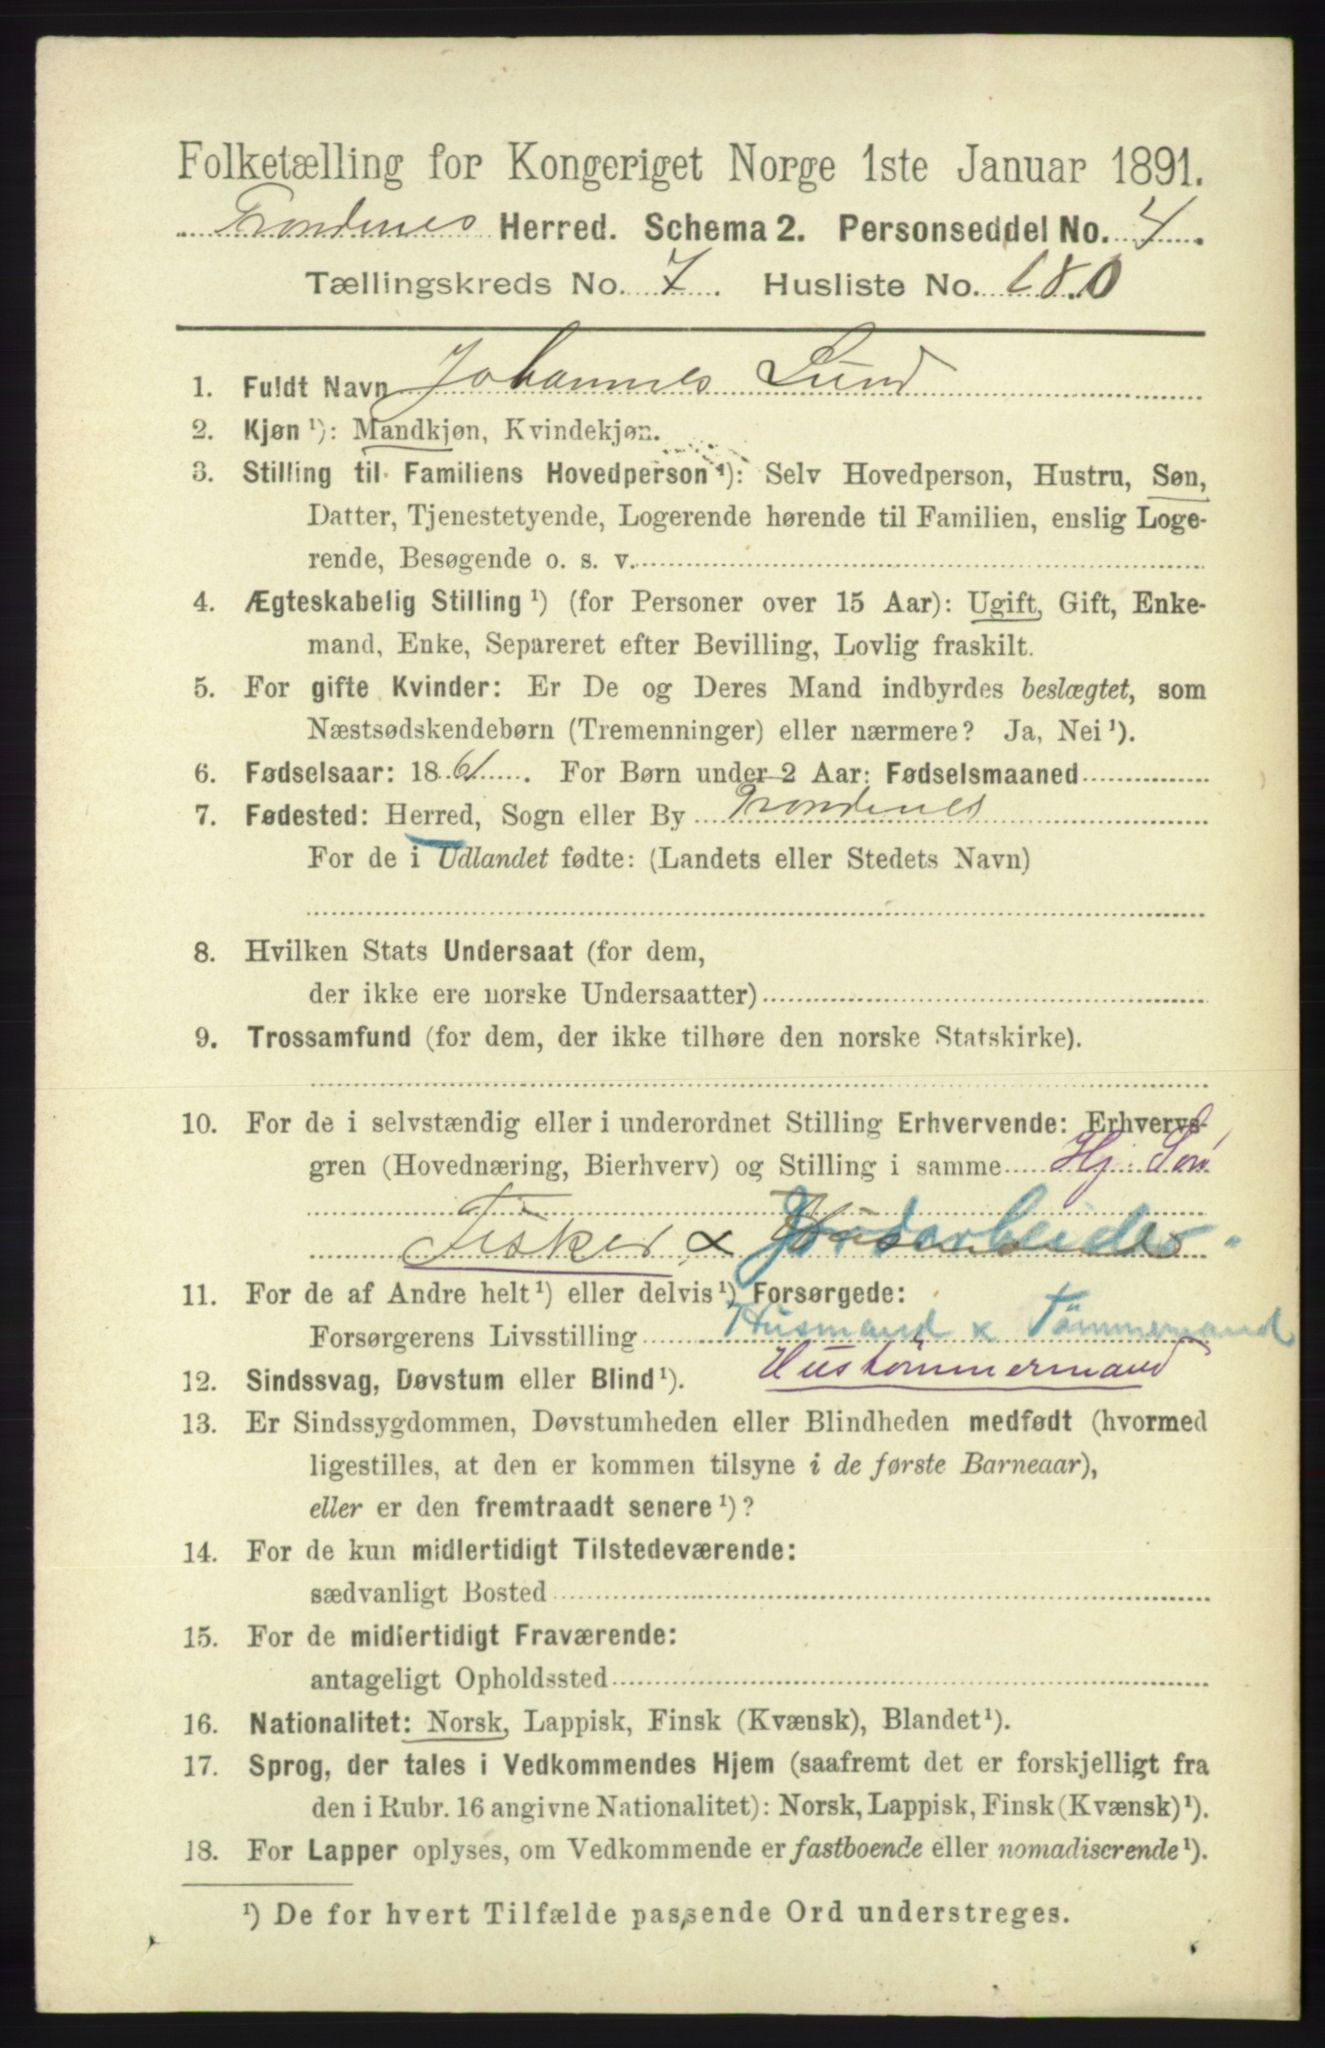 Folketælling for Kongeriget Norge 1ste Januar 1891.
Trondenes Herred. Schema 2. Personseddel No. 4.
Tællingskreds No. 7. Husliste No. 180
1. Fuldt Navn Johannes Lund
2. Kjøn ¹): Mandkjøn, Kvindekjøn.
3. Stilling til Familiens Hovedperson ¹): Selv Hovedperson, Hustru, Søn,
Datter, Tjenestetyende, Logerende hørende til Familien, enslig Loge-
rende, Besøgende o. s. v.
4. Ægteskabelig Stilling ¹) (for Personer over 15 Aar): Ugift, Gift, Enke-
mand, Enke, Separeret efter Bevilling, Lovlig fraskilt.
5. For gifte Kvinder: Er De og Deres Mand indbyrdes beslægtet, som
Næstsødskendebørn (Tremenninger) eller nærmere? Ja, Nei ¹).
6. Fødselsaar: 1861. For Børn under 2 Aar: Fødselsmaaned
7. Fødested: Herred, Sogn eller By Trondenes
For de i Udlandet fødte: (Landets eller Stedets Navn)
8. Hvilken Stats Undersaat (for dem,
der ikke ere norske Undersaatter)
9. Trossamfund (for dem, der ikke tilhøre den norske Statskirke).
10. For de i selvstændig eller i underordnet Stilling Erhvervende: Erhvervs-
gren (Hovednæring, Bierhverv) og Stilling i samme Hj. Søn
Fisker x Jordarbeider
11. For de af Andre helt ¹) eller delvis ¹) Forsørgede:
Forsørgerens Livsstilling Husmand x Tömmermand
12. Sindssvag, Døvstum eller Blind ¹). Hustömmermand
13. Er Sindssygdommen, Døvstumheden eller Blindheden medfødt (hvormed
ligestilles, at den er kommen tilsyne i de første Barneaar),
eller er den fremtraadt senere ¹)?
14. For de kun midlertidigt Tilstedeværende:
sædvanligt Bosted
15. For de midlertidigt Fraværende:
antageligt Opholdssted
16. Nationalitet: Norsk, Lappisk, Finsk (Kvænsk), Blandet ¹).
17. Sprog, der tales i Vedkommendes Hjem (saafremt det er forskjelligt fra
den i Rubr. 16 angivne Nationalitet): Norsk, Lappisk, Finsk (Kvænsk) ¹).
18. For Lapper oplyses, om Vedkommende er fastboende eller nomadiserende ¹).
¹) De for hvert Tilfælde passende Ord understreges.